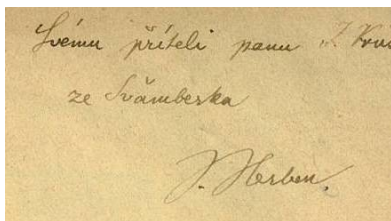 Svému příteli panu
ze Švamberka
J. Herben.